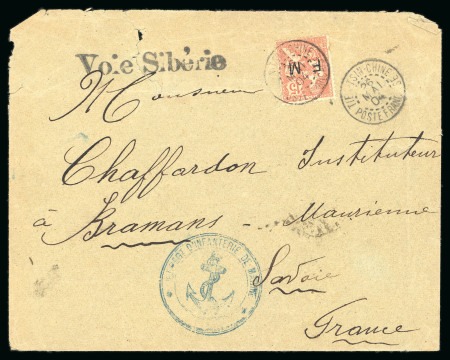 Voie Sibérie
F M
15
TSIN-CHINE
POSTE FRANC
25
04
Monsieur
Chaffardon Instituteur
à Bramans - Maurienne
Savoie
France
INFANTERIE DE MARINE